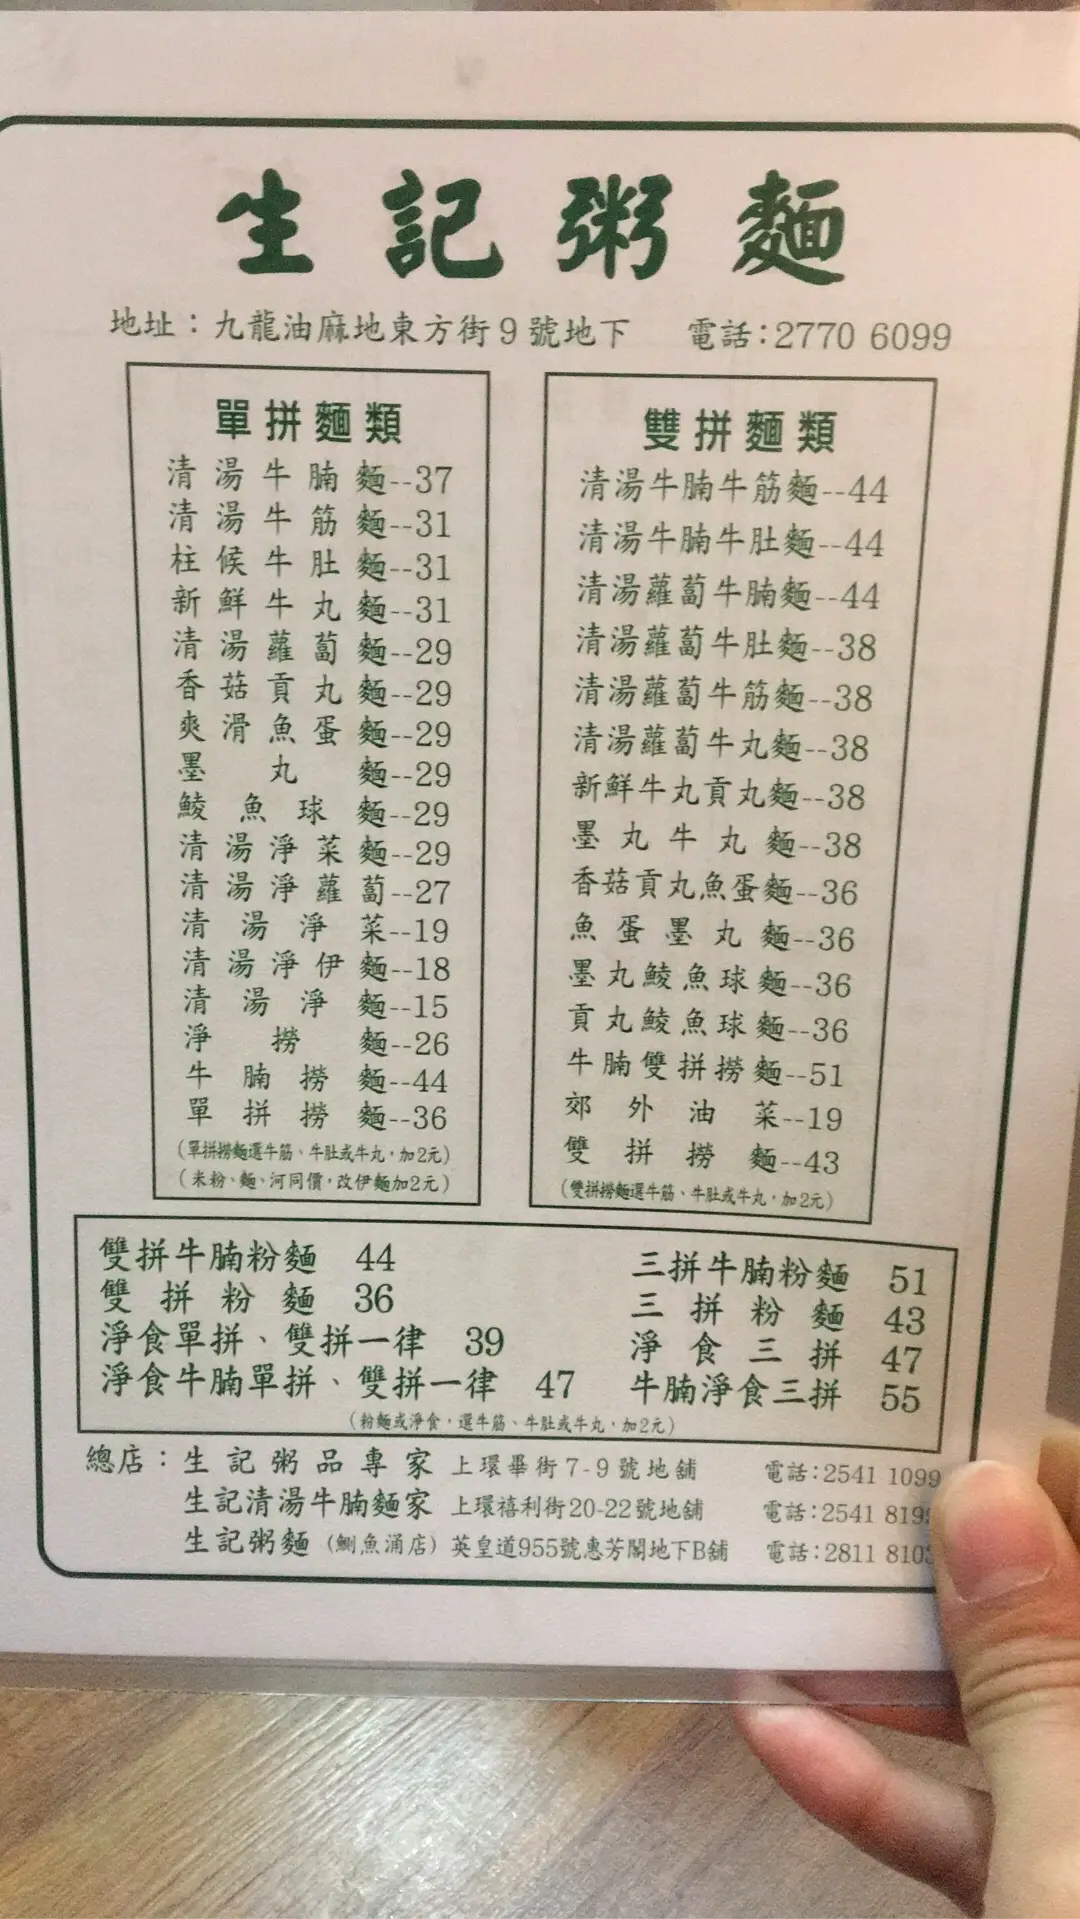 生記粥麵
地址：九龍油麻地東方街9號地下 電話：2770 6099
單拼麵類
清湯牛腩麵--37
清湯牛筋麵--31
柱候牛肚麵--31
新鮮牛丸麵--31
清湯蘿蔔麵--29
香菇貢丸麵--29
爽滑魚蛋麵--29
墨丸麵--29
鯪魚球麵--29
清湯淨菜麵--29
清湯淨蘿蔔--27
清湯淨菜--19
清湯淨伊麵--18
清湯淨麵--15
淨撈麵--26
牛腩撈麵--44
單拼撈麵--36
（單拼撈麵選牛筋、牛肚或牛丸，加2元）
（米粉、麵、河同價，改伊麵加2元）
雙拼麵類
清湯牛腩牛筋麵--44
清湯牛腩牛肚麵--44
清湯蘿蔔牛腩麵--44
清湯蘿蔔牛肚麵--38
清湯蘿蔔牛筋麵--38
清湯蘿蔔牛丸麵--38
新鮮牛丸貢丸麵--38
墨丸牛丸麵--38
香菇貢丸魚蛋麵--36
魚蛋墨丸麵--36
墨丸鯪魚球麵--36
貢丸鯪魚球麵--36
牛腩雙拼撈麵--51
郊外油菜--19
雙拼撈麵--43
（雙拼撈麵選牛筋、牛肚或牛丸，加2元）
雙拼牛腩粉麵 44
雙拼粉麵 36
淨食單拼、雙拼一律 39
淨食牛腩單拼、雙拼一律 47
三拼牛腩粉麵 51
三拼粉麵 43
淨食三拼 47
牛腩淨食三拼 55
（粉麵或淨食，選牛筋、牛肚或牛丸，加2元）
總店：生記粥品專家 上環畢街7-9號地舖 電話：2541 1099
生記清湯牛腩麵家 上環禧利街20-22號地舖 電話：2541 819
生記粥麵（鰂魚涌店）英皇道955號惠芳閣地下B舖 電話：2811 810